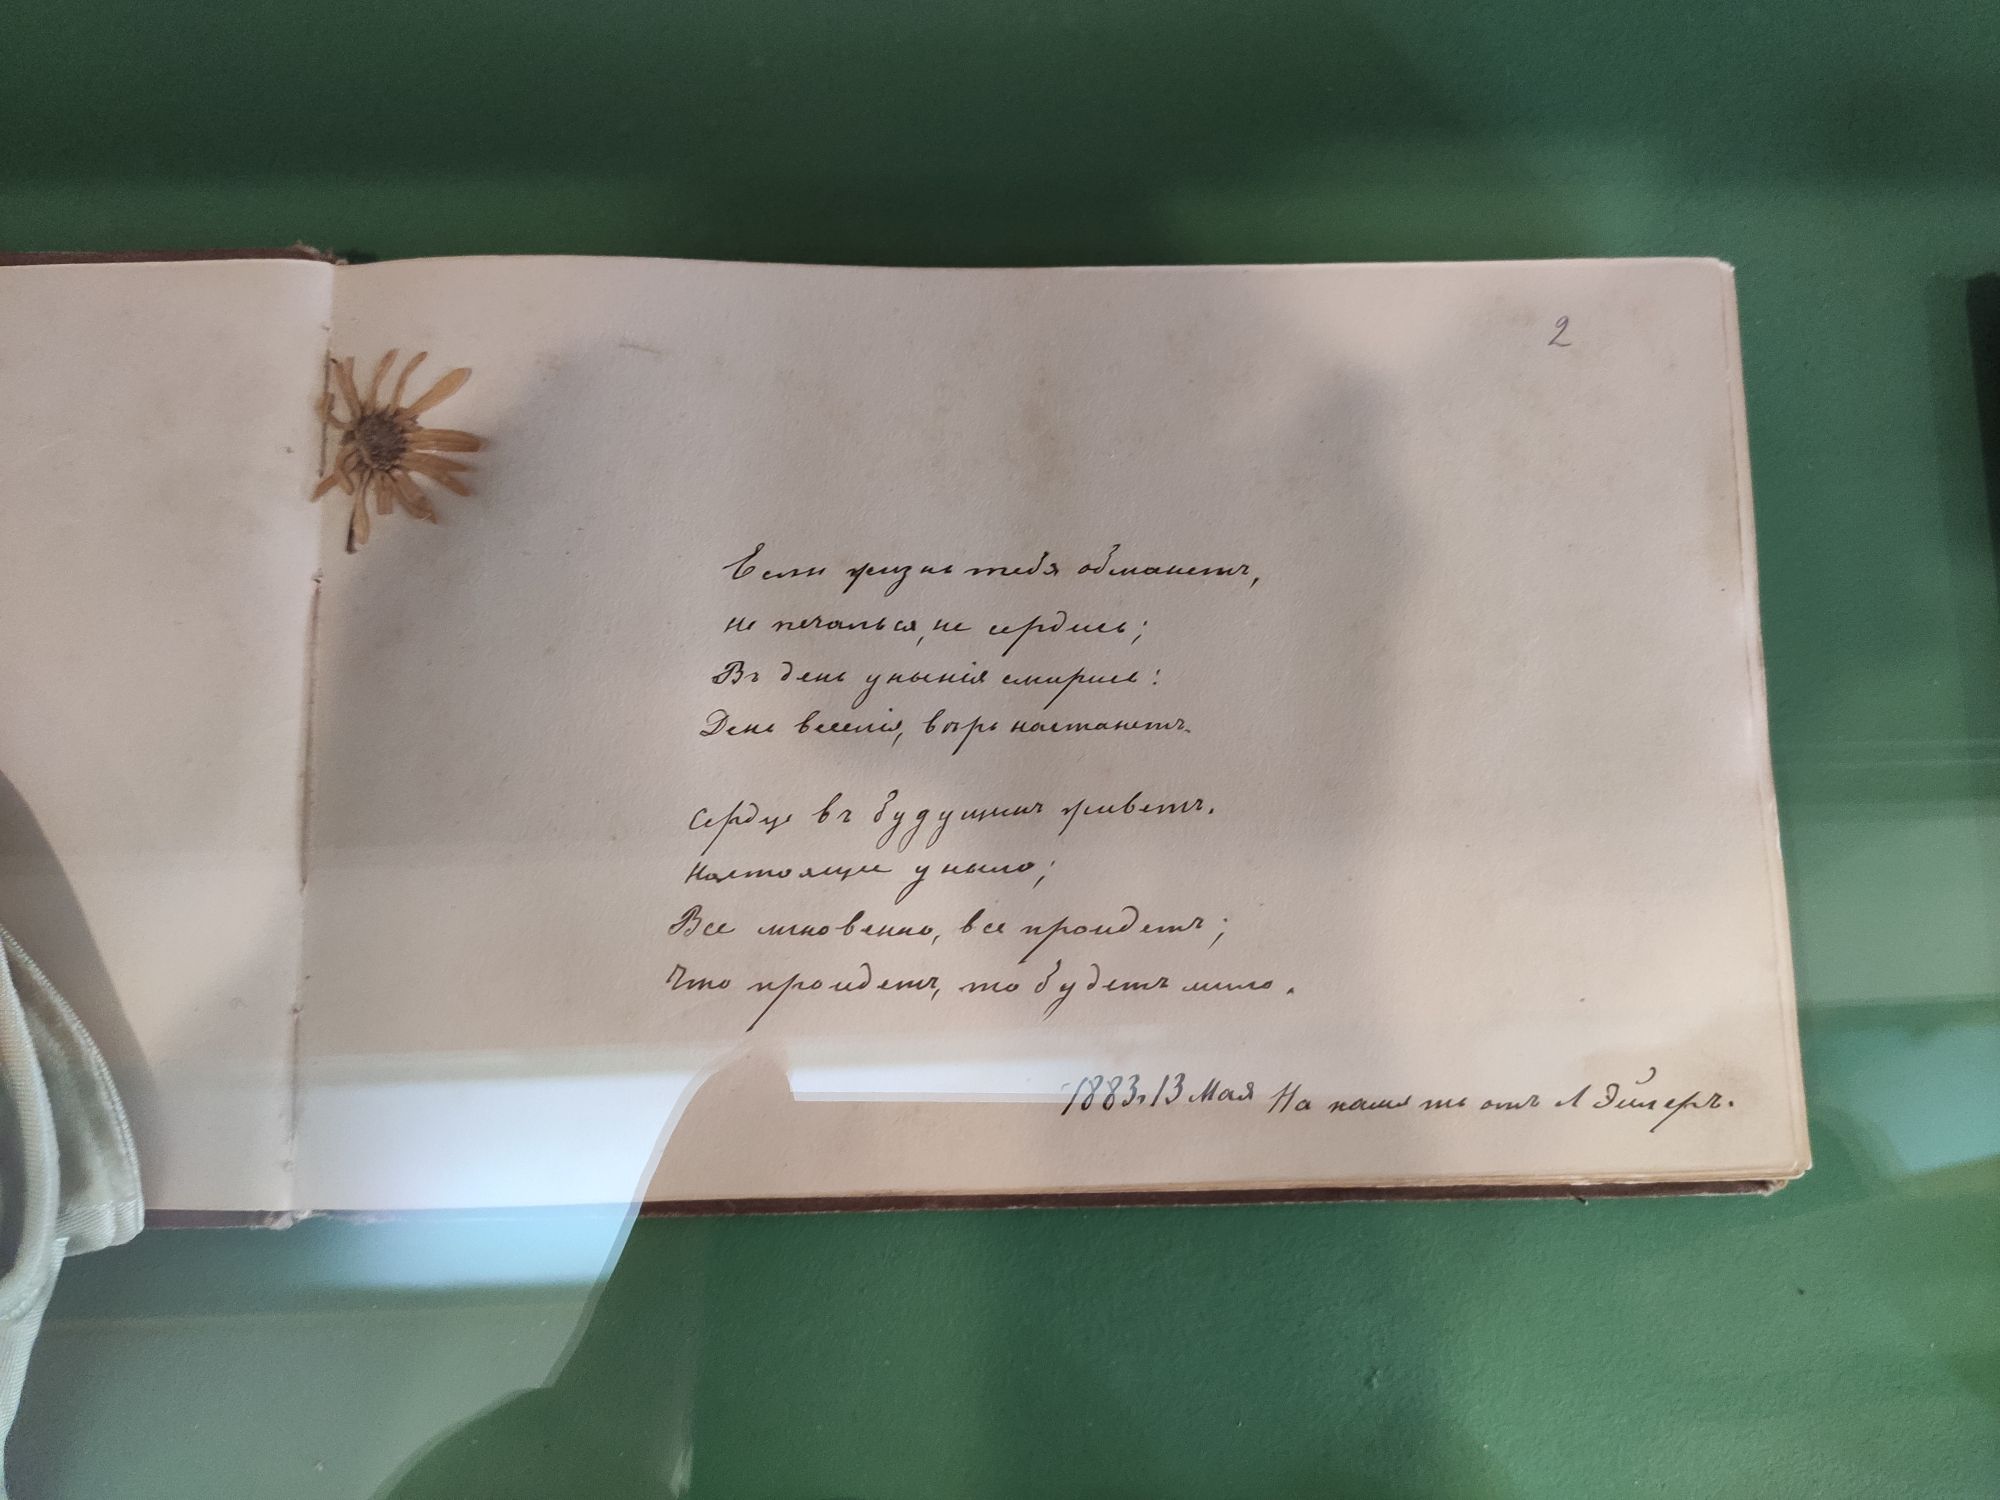 2
Если жизнь тебя обманетъ,
не печалься, не сердись;
Въ день унынія смирись:
День веселія, вѣрь настанетъ.
Сердце въ будущимъ живетъ.
Настоящее уныло;
Все мгновенно, все проидетъ;
Что проидетъ, то будетъ мило.
1883. 13 Мая На память отъ Л Эйлеръ.